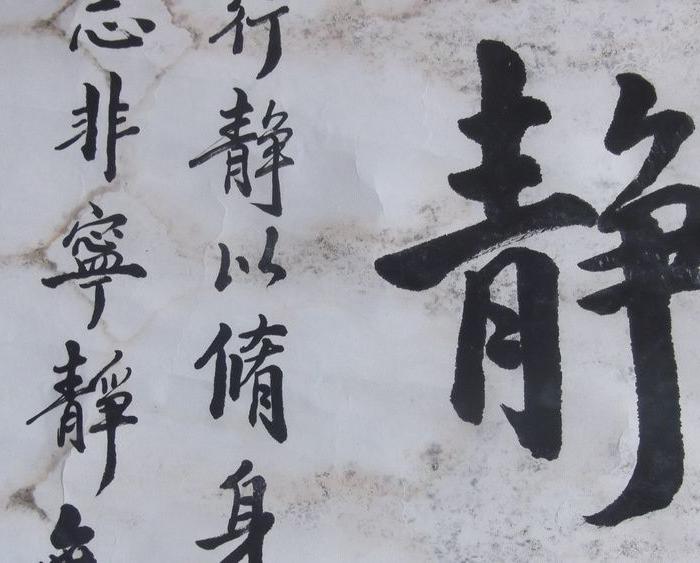 静
行静以脩身
志非寧靜無